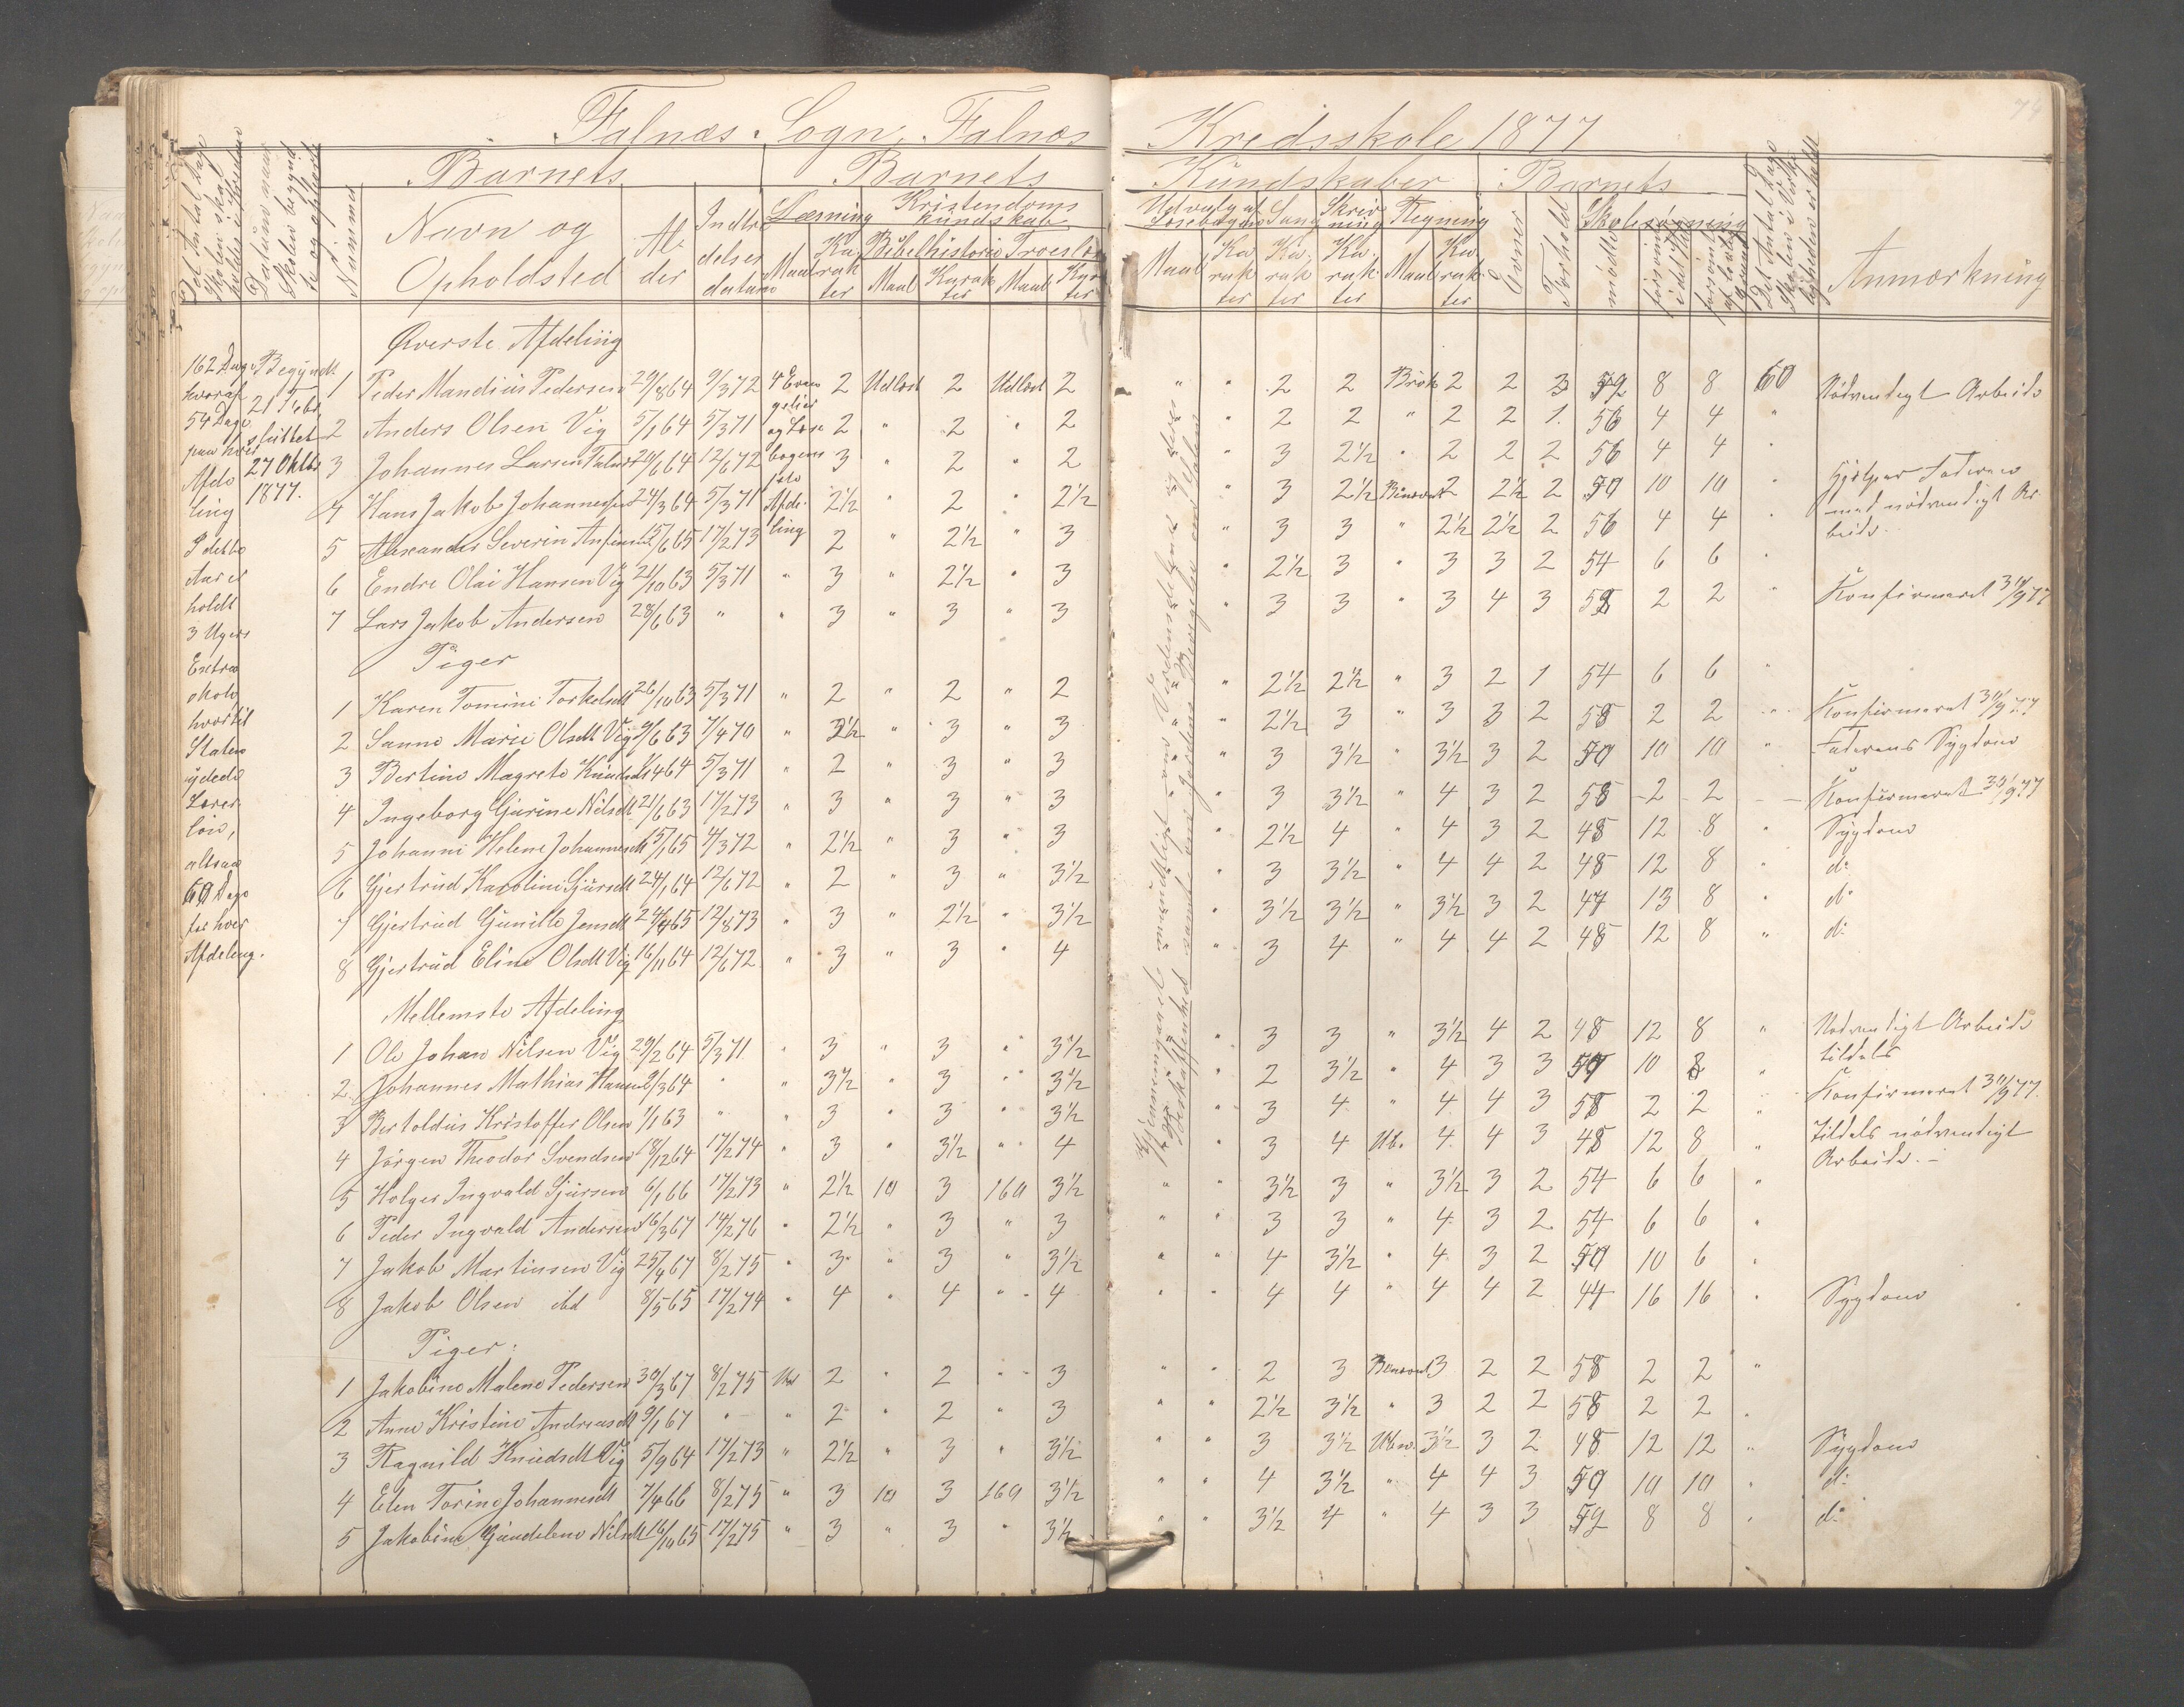 Falnæs Sogn, Falnæs Kredsskole 1877
74
Barnets Barnets Kundskaber Barnets
Nummer
Navn og Opholdsted
Al-der
Indtrædelses datum
Læsning Maal Karakter
Kristendoms kundskab
Bibelhistorie Maal Karakter
Troeslære Maal Karakter
Udvalg af Læsebogen Maal Karakter
Sang Karakter
Skrivning Karakter
Regning Maal Karakter
Evner
Forhold
Skolesøgning
mödte
Anmærkning
162 Dage
hvoraf
54 Dage
paa hver
Afde
ling
I dette
Aar er
holdt
3 Ugers
Extra
skole
hvortil
Staten
ydede
Lærer
løn,
altsaa
60 Dage
for hver
Afdeling.
Begyndt
21 Febr
sluttet
27 Oktbr
1877.
Øverste Afdeling
1 Peder Mandius Pedersen 29/8 64 9/3 72 4 Evangelier og Læsebogens Afdeling 2 Udlæst 2 Udlæst 2 " " 2 2 Brök 2 2 3 52 8 8 60 Nödvendigt Arbeide
2 Anders Olsen Vig 5/1 64 5/3 71 2 " 2 " 2 " 2 2 " 2 2 1. 56 4 4 "
3 Johannes Larsen Falnæs 29/6 64 12/6 72 3 " 2 " 2 " 3 2½ " 2 2 2 56 4 4 "
4 Hans Jakob Johannessen 24/3 64 5/3 71 2½ 2 " 2½ " 3 2½ Benævnt 2 2½ 2 50 10 10 " Hjelper Faderen med nödvendigt Arbeide.
5 Alexander Severin Anfinsen 15/6 65 17/2 73 2 " 2½ " 3 " 3 3 " 2½ 2½ 2 56 4 4 "
6 Endre Olai Hansen Vig 21/10 63 5/3 71 " 3 " 2½ " 3 " 2½ 3 " 3 3 2 54 6 6 "
7 Lars Jakob Andersen 28/6 63 " " 3 " 3 " 3 " 3 3 " 3 4 3 58 2 2 " Konfirmeret 30/9 77
Piger
1 Karen Tomine Torkelsdt 26/10 63 5/3 71 " 2 " 2 " 2 " 2½ 2½ " 3 2 1 54 6 6 "
2 Sanne Marie Olsdt Vig 9/6 63 7/4 70 " 2½ " 3 " 3 " 2½ 3 " 3 3 2 58 2 2 " Konfirmeret 30/9 77
3 Bertine Magrete Knudsdt 4 64 5/3 71 " 2 " 3 " 3 " 3 3½ " 3½ 3 2 50 10 10 " Faderens Sygdom
4 Ingeborg Gurine Nilsdt 21/6 63 17/2 73 " 3 " 3 " 3 " 3 3½ " 4 3 2 58 2 2 Konfirmeret 30/9 77
5 Johanne Helene Johannesdt 15/1 65 4/3 72 " 2½ " 3 " 3 " 2½ 4 " 4 3 2 48 12 8 " Sygdom
6 Gjertrud Karoline Sjursdt 24/1 64 12/6 72 " 2 " 3 " 3½ " 3 3½ " 4 4 2 48 12 8 " do
7 Gjertrud Gunille Jensdt 24/4 65 12/8 73 " 3 " 2½ " 3½ " 3½ 3½ " 3½ 3 2 47 13 8 " do
8 Gjertrud Eline Olsdt Vig 16/11 64 12/6 72 " 3 " 3 " 4 " 3 4 " 4 4 2 48 12 8 " do
Mellemste Afdeling
1 Ole Johan Nilsen Vig 29/2 64 5/3 71 " 3 " 3 " 3½ " 3 3 " 3½ 4 2 48 12 8 " Nödvendigt Arbeide tildels
2 Johannes Mathias Hansen 9/3 64 " " 3½ " 3 " 3½ " 2 3½ " 4 3 3 50 10 8 "
3 Bertoldus Kristoffer Olsen 1/1 63 " " 3 " 3 " 3½ " 3 4 " 4 4 3 58 2 2 " Konfirmeret 30/9 77.
4 Jörgen Theodor Svendsen 18/12 64 17/2 74 " 3 " 3½ " 4 " 3 4 Ub. 4 4 3 48 12 8 " Tildels nödvendigt Arbeide.
5 Holger Ingvald Sjursen 6/1 66 17/2 73 " 2½ 10 3 160 3½ " " 3½ 3 " 3½ 3 2 54 6 6 "
6 Peder Ingvald Andersen 16/3 67 14/2 76 " 2½ " 3 " 3 " " 3 3 " 4 3 2 54 6 6 "
7 Jakob Martinsen Vig 25/4 67 8/2 75 " 3 " 3 " 3½ " " 4 3½ " 4 3 2 50 10 6 "
8 Jakob Olsen ibd 8/5 65 17/2 74 " 4 " 4 " 4 " " 4 4 " 4 4 2 44 16 16 " Sygdom
Piger:
1 Jakobine Malene Pedersen 30/3 67 8/2 75 2 " 2 " 3 " " 2 3 Benævnt 3 2 2 58 2 2 "
2 Anne Kristine Andreasdt 9/1 67 " " 2 " 2 " 3 " " 2½ 3½ " 3 2 2 58 2 2 "
3 Ragnild Knudsdt Vig 5/9 64 17/2 73 " 2½ " 3 " 3½ " " 3 3½ Ubn. 3½ 3 2 48 12 12 " Sygdom
4 Elen Torine Johannesdt 7/4 66 8/2 75 " 3 10 3 160 3½ " " 4 3½ " 4 4 3 50 10 10 " do
5 Jakobine Gundelene Nilsdt 16/10 65 17/2 75 " 3 " 3 " 3½ " " 3½ 4 " 4 3 3 52 8 8 " do